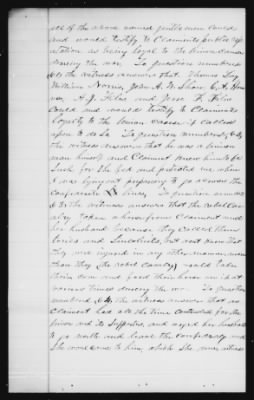 all of the above named gentlemen could
and would testify to Claimants public rep-
utation as being loyal to the Union cause
during the war. To question number
61 the witness answers that Thomas
William Norris, John A. W. Shaw, C. H.
A. J. Files and Jesse F. Files
could and would testify to Claimants
loyalty to the Union cause if called
upon to do so. To question number 62
the witness answers that he was a Union
man himself and Claimant knew him to be
such for she fed and protected me, when
I was lying out preparing to go across the
confederate lines. To question number
63 the witness answers that the rebel cav-
alry taken a horse from Claimant and
her husband because they called them
tories and but dont know that
they were injured in any other manner more
than they (the rebel cavalry) would take
their corn and feed their horses with at
various times during the war. To question
number 64 the witness answer that as
Claimant had all the time contended for the
Union and its supporters and urged her husband
to go north and leave the confederacy and
she would come to him, which she never